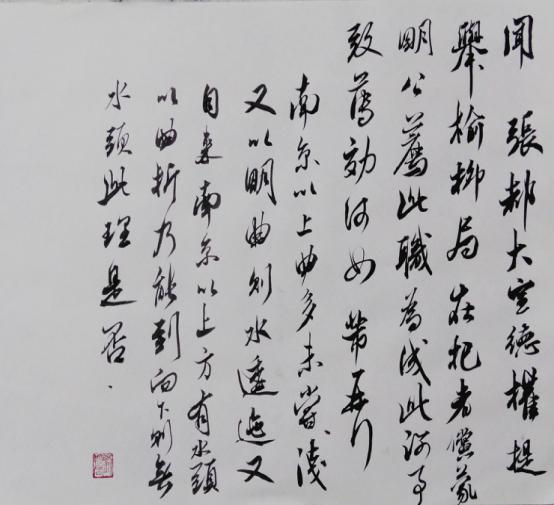 聞 張都大宣德權提
舉榆柳局在杞者儻蒙
明公薦此職為成此河事
致薦効何如 芾再行
南京以上曲多未嘗淺
又以明曲則水逶迤又
自来南京以上方有水頭
以曲折乃能到向下則無
水頭此理是否.